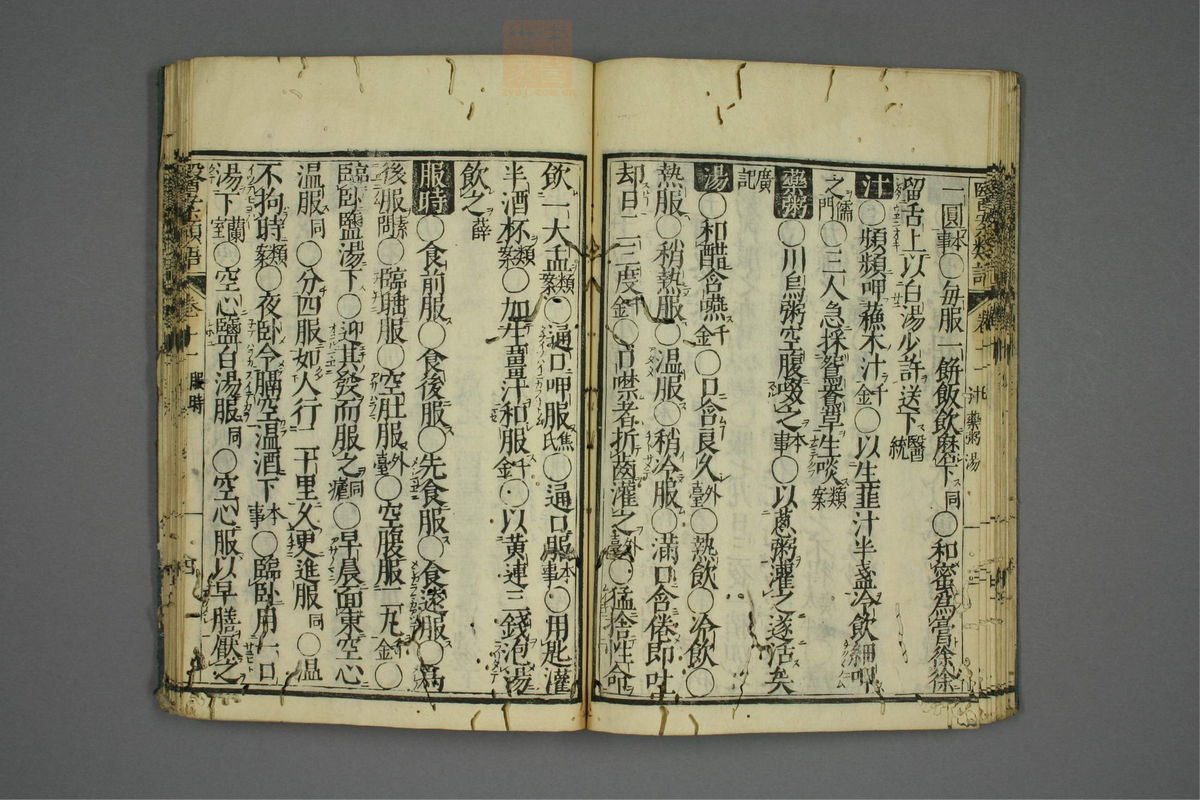 一圓本事○每服一餠飯飮磨下同○和蜜爲膏徐徐
留舌上以白湯少許送下醫統
汁○頻頻呷蘸木汁千金○以生韮汁半盞冷飮細呷
之儒門○三人急採鴛鴦草生啖類案
藥粥○川烏粥空腹啜之本事○以蔥粥灌之遂活矣
廣記
湯○和醋含嚥千金○口含良久外臺○熱飮○冷飮○
熱服○稍熱服○溫服○稍冷服○滿口含倦即吐
却日二三度千金○口噤者折齒灌之外臺○猛捨性命
飮一大盂類案○通口呷服焦氏○通口服本事○用匙灌
半酒杯類案○加生薑汁和服千金○以黃連三錢泡湯
飮之薛
服時○食前服○食後服○先食服○食遠服○爲
後服素問○臨臥服○空肚服外臺○空腹服一丸千金○
臨臥鹽湯下○迎其發而服之同瘧○早晨面東空心
溫服同○分四服如人行二十里久更進服同○溫
不拘時類案○夜臥令膈空溫酒下本事○臨臥用一口
湯下蘭室○空心鹽白湯服同○空心服以早膳厭之
醫學類語 卷十一 服時
卷十一 汁 藥粥 湯